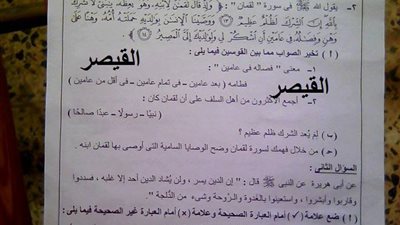 ٢- يقول الله ﷻ في سورة " لقمان " : ﴿ وَإِذْ قَالَ لُقْمَانُ لِابْنِهِ وَهُوَ يَعِظُهُ يَا بُنَيَّ لَا تُشْرِكْ
بِاللَّهِ إِنَّ الشِّرْكَ لَظُلْمٌ عَظِيمٌ (١٣) وَوَصَّيْنَا الْإِنسَانَ بِوَالِدَيْهِ حَمَلَتْهُ أُمُّهُ وَهْنًا عَلَىٰ
وَهْنٍ وَفِصَالُهُ فِي عَامَيْنِ أَنِ اشْكُرْ لِي وَلِوَالِدَيْكَ إِلَيَّ الْمَصِيرُ (١٤) ﴾
( أ ) تخير الصواب مما بين القوسين فيما يلى :
القيصر
١- معنى " فصاله فى عامين " :
القيصر
فطامه ( بعد عامين - فى تمام عامين - فى أقل من عامين )
٢- أجمع الأكثرون من أهل السلف على أن لقمان كان :
( نبيًّا - رسولًا - عبدًا صالحًا )
(ب) لِمَ يُعد الشرك ظلم عظيم ؟
(جـ) من خلال فهمك لسورة لقمان وضح الوصايا السامية التى أوصى بها لقمان ابنه .
السؤال الثانى :
عن أبي هريرة عن النبي ﷺ قال : " إن الدين يسر ، ولن يُشاد الدين أحد إلا غلبه ، فسددوا
وقاربوا وأبشروا ، واستعينوا بالغدوة والرَّوحة وشىء من الدُّلجة "
( أ ) ضع علامة (✓) أمام العبارة الصحيحة وعلامة (×) أمام العبارة غير الصحيحة فيما يلى :